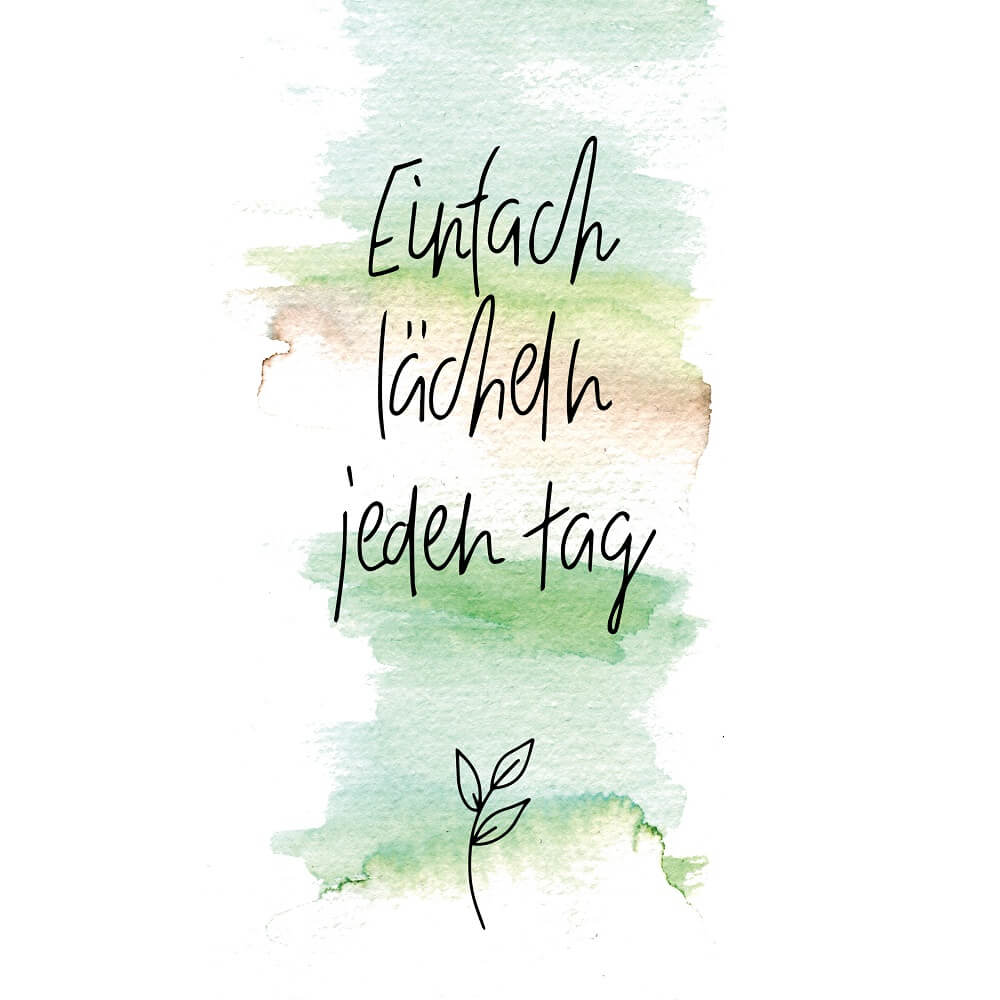 Einfach
lächeln
jeden tag